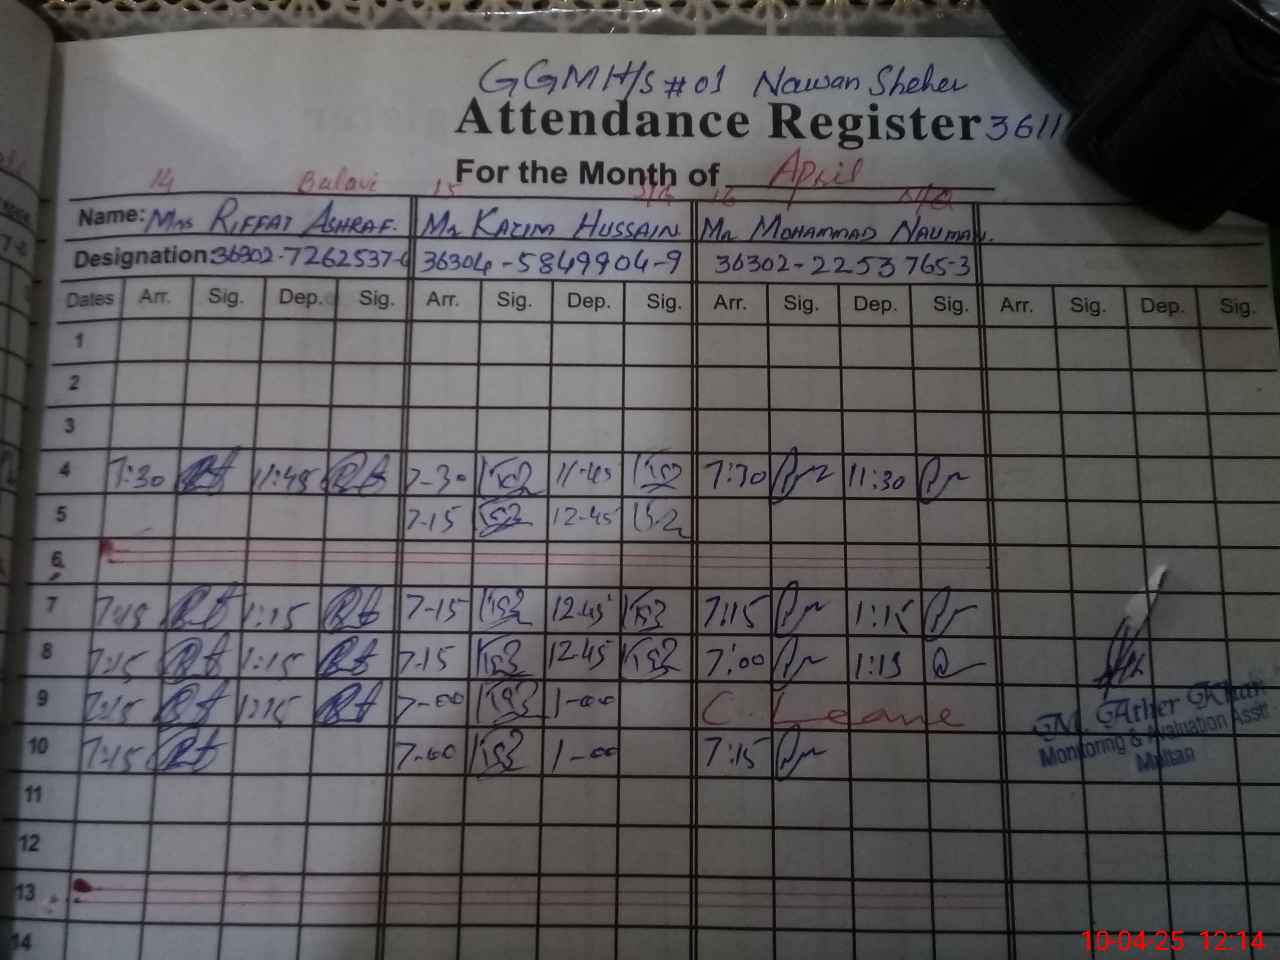 GGMHS #01 Nawan Sheher
Attendance Register 3611
For the Month of April
14 15 16
Name: Mrs RIFFAT ASHRAF. Mr KAZIM HUSSAIN Mr MOHAMMAD NAUMAN.
Designation: 36302-7262537- 36304-5849904-9 36302-2253765-3
Dates Arr. Sig. Dep. Sig. Arr. Sig. Dep. Sig. Arr. Sig. Dep. Sig. Arr. Sig. Dep. Sig.
1
2
3
4 7:30 11:45 7-30 11-45 7:30 11:30
5 7-15 12-45
6
7 7:15 1:15 7-15 12-45 7:15 1:15
8 7:15 1:15 7-15 12-45 7:00 1:15
9 7:15 1:15 7-00 1-00 C. Leave
10 7:15 7-00 1-00 7:15
11
12
13
14
M. Ather Khan
Monitoring & Evaluation Asstt
Multan
10-04-25 12:14